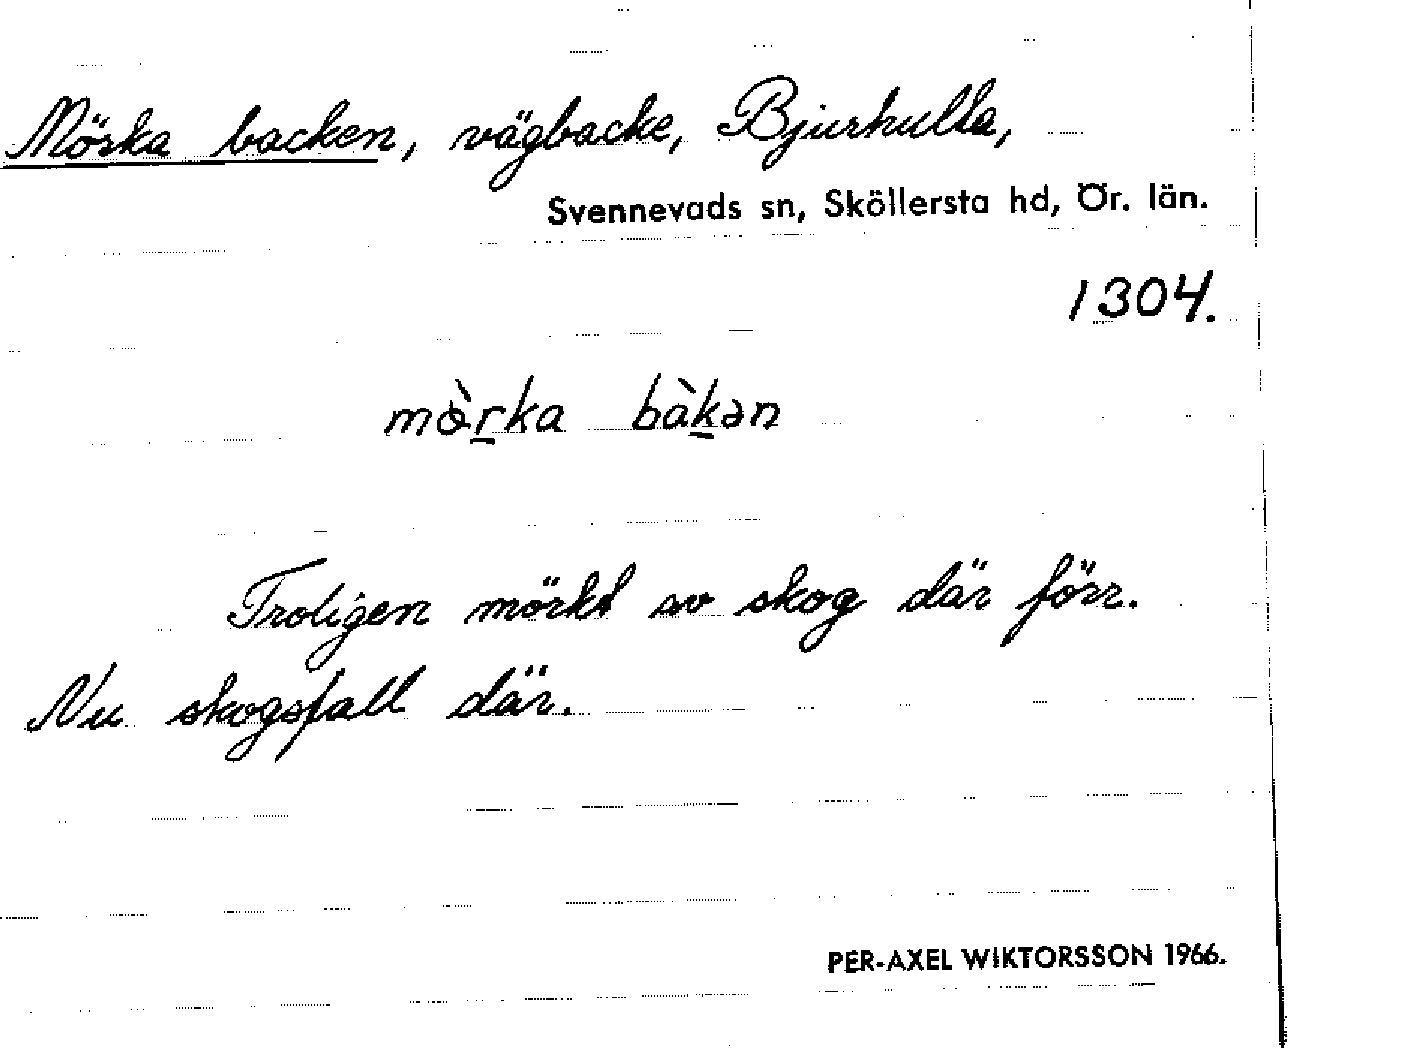 Mörka backen, vägbacke, Bjurhulta,
Svennevads sn, Sköllersta hd, Ör. län.
1304.
mɵ̀r̲ka bàk̲ən
Troligen mörkt av skog där förr.
Nu skogsfall där.
PER-AXEL WIKTORSSON 1966.